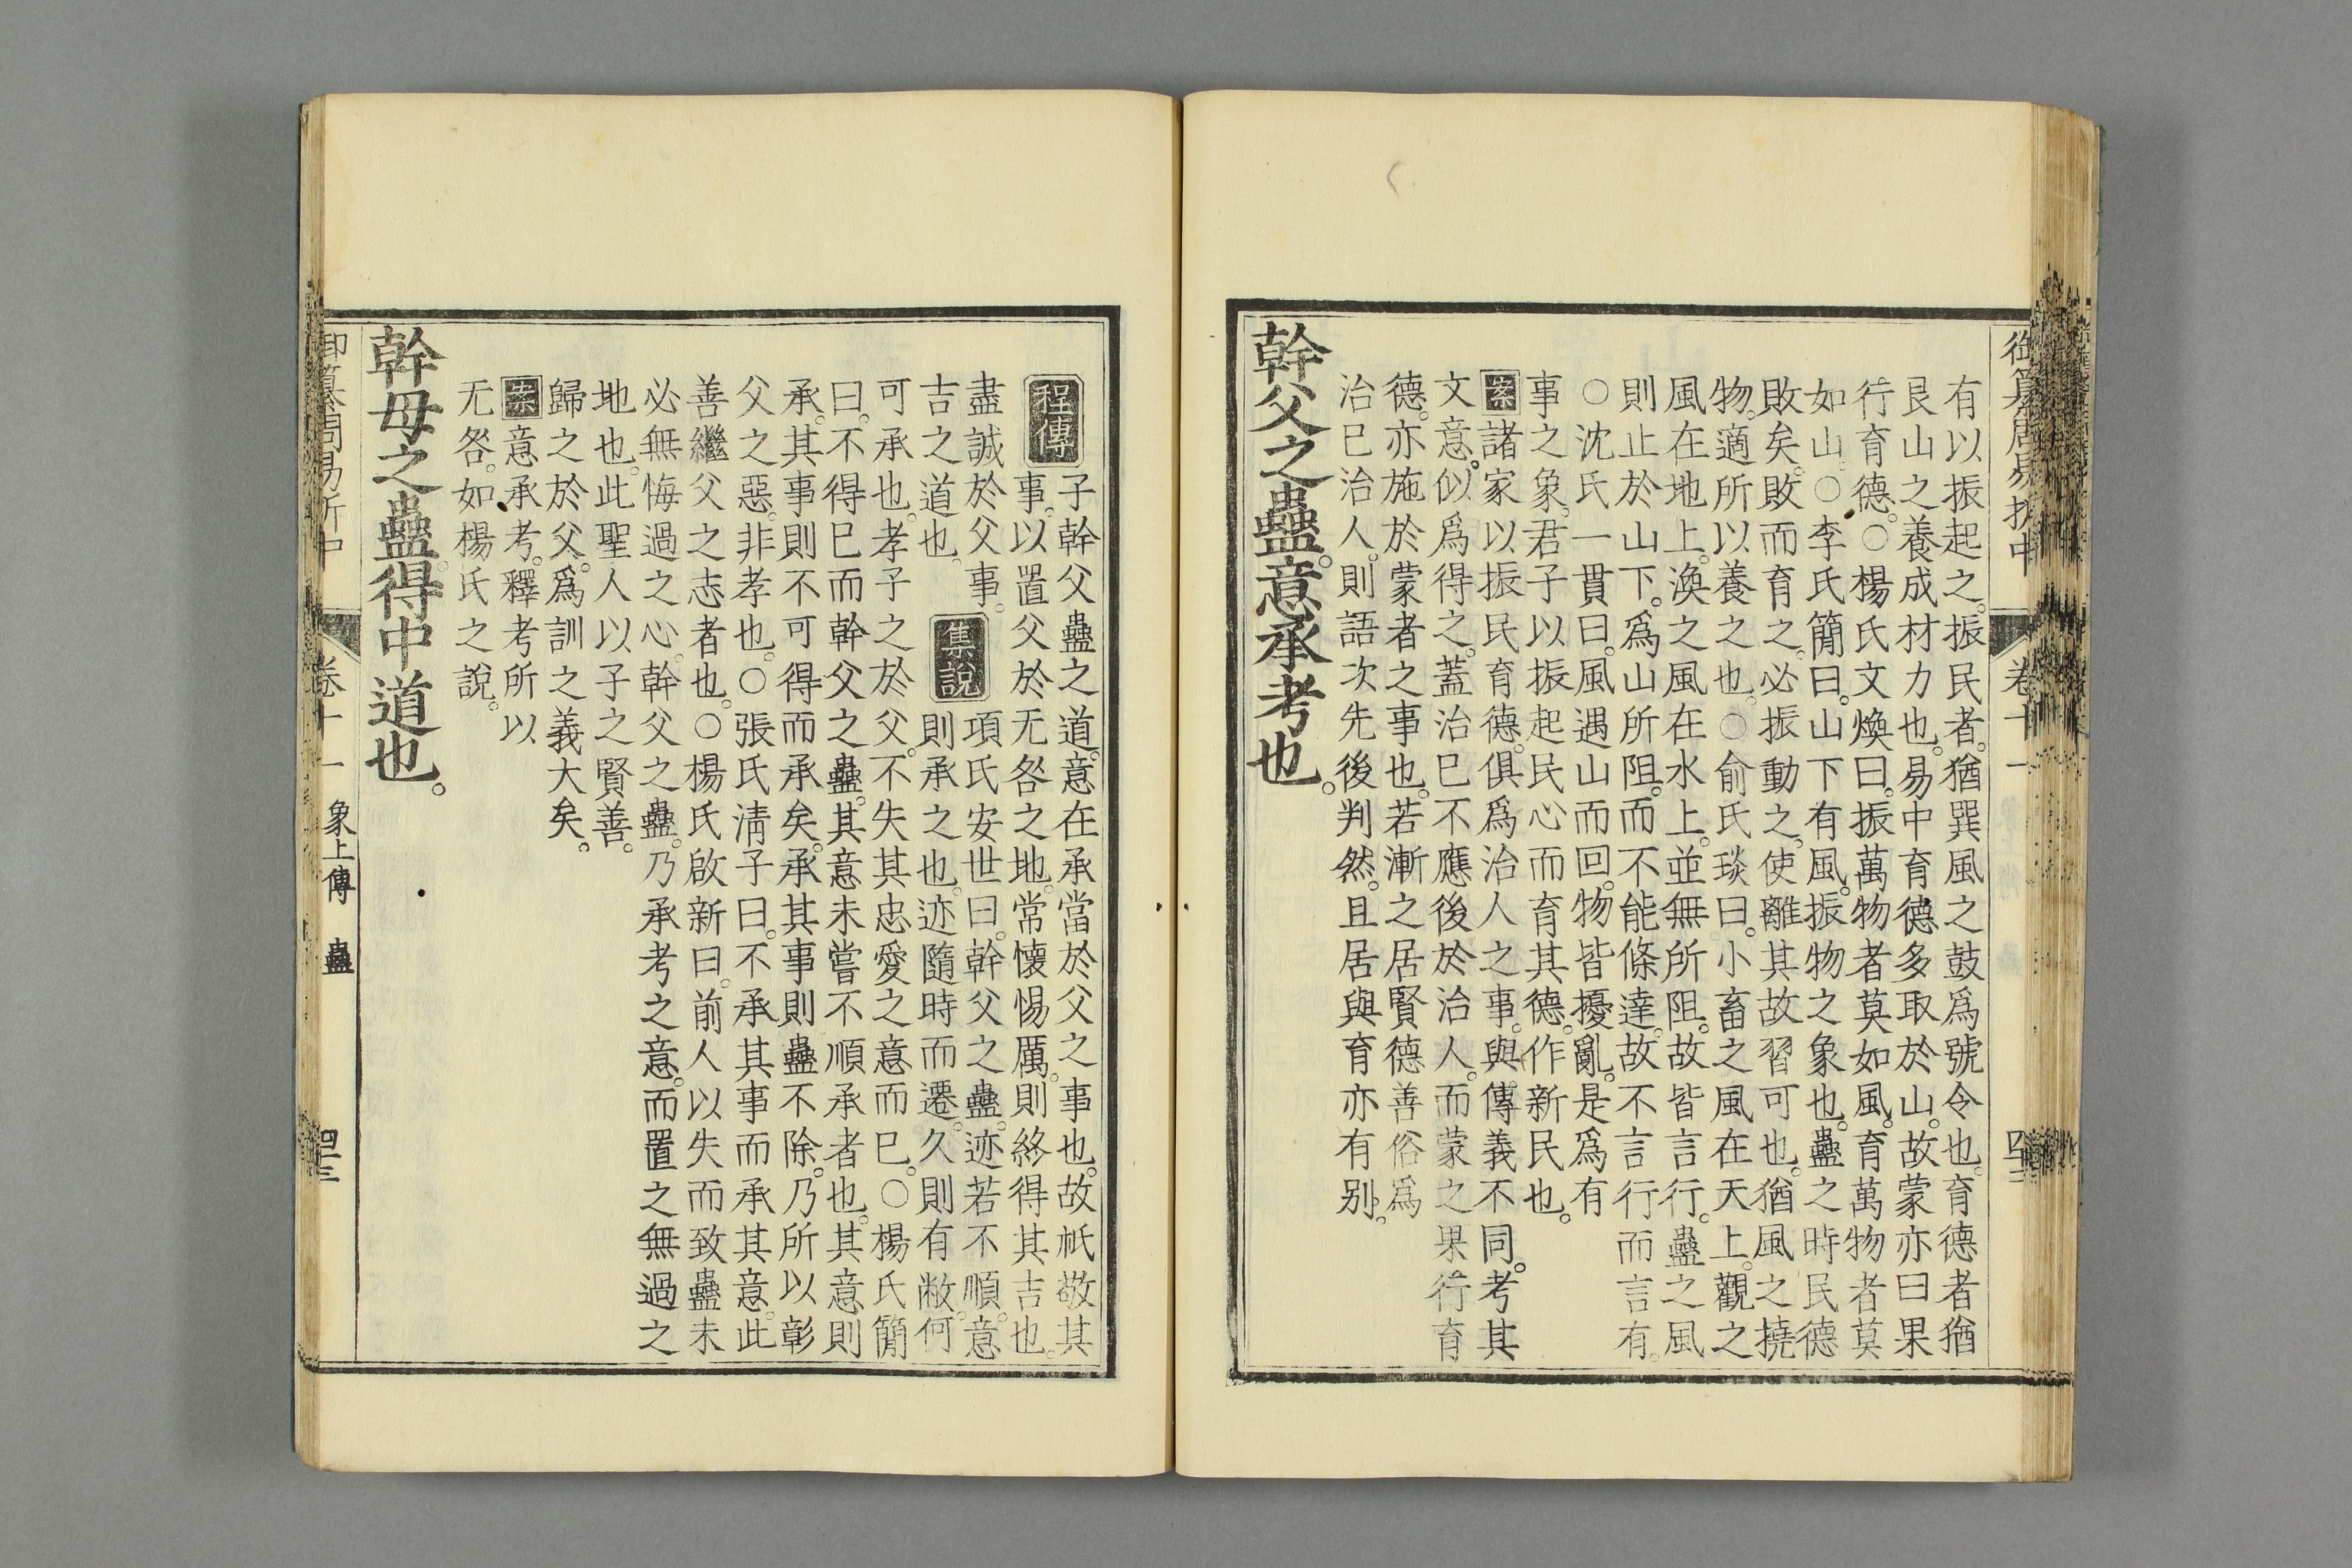 有以振起之。振民者。猶巽風之鼓爲號令也。育德者猶
艮山之養成材力也。易中育德多取於山。故蒙亦曰果
行育德。○楊氏文煥曰。振萬物者莫如風。育萬物者莫
如山。○李氏簡曰。山下有風。振物之象也。蠱之時民德
敗矣。敗而育之。必振動之。使離其故習可也。猶風之撓
物。適所以養之也。○俞氏琰曰。小畜之風在天上。觀之
風在地上。渙之風在水上。並無所阻。故皆言行。蠱之風
則止於山下。爲山所阻。而不能條達。故不言行而言有。
○沈氏一貫曰。風遇山而回。物皆擾亂。是爲有
事之象。君子以振起民心而育其德。作新民也。
案諸家以振民育德。俱爲治人之事。與傳義不同。考其
文意。似爲得之。蓋治已不應後於治人。而蒙之果行育
德。亦施於蒙者之事也。若漸之居賢德善俗爲
治已治人。則語次先後判然。且居與育亦有别。
幹父之蠱。意承考也。
御纂周易折中 卷十一
程傳
子幹父蠱之道。意在承當於父之事也。故祇敬其
事。以置父於无咎之地。常懷惕厲。則終得其吉也。
盡誠於父事。
吉之道也。
集說
項氏安世曰。幹父之蠱。迹若不順。意
則承之也。迹隨時而遷。久則有敝。何
可承也。孝子之於父。不失其忠愛之意而已。○楊氏簡
曰。不得已而幹父之蠱。其意未嘗不順承者也。其意則
承。其事則不可得而承矣。承其事則蠱不除。乃所以彰
父之惡。非孝也。○張氏清子曰。不承其事而承其意。此
善繼父之志者也。○楊氏啟新曰。前人以失而致蠱未
必無悔過之心。幹父之蠱。乃承考之意。而置之無過之
地也。此聖人以子之賢善。
歸之於父。爲訓之義大矣。
案意承考。釋考所以
无咎。如楊氏之說。
幹母之蠱。得中道也。
御纂周易折中 卷十一 象上傳 蠱 四十三